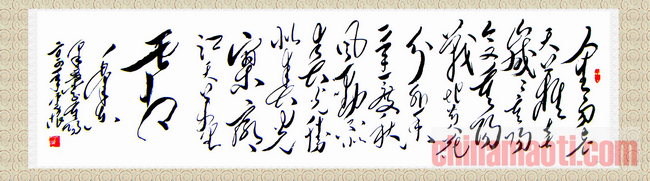 人生易老
天难老
岁岁重阳
今又重阳
战地黄花
分外香
一年一度秋
风劲不似
春光胜
似春光
寥廓
江天万里霜
chinamaoti.com